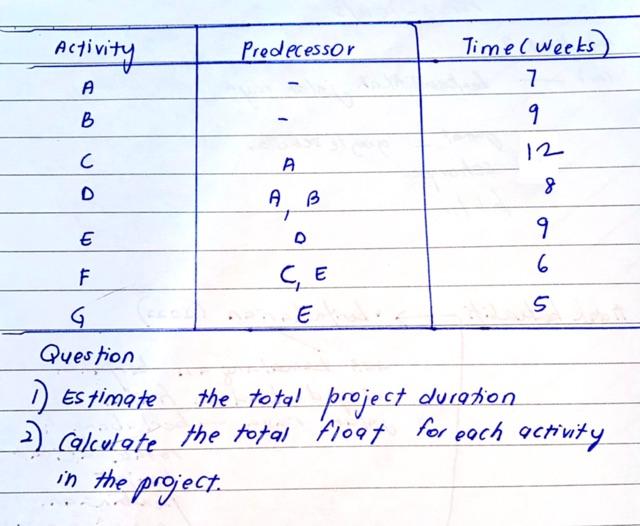 Activity Predecessor Time (Weeks)
A - 7
B - 9
C A 12
D A, B 8
E D 9
F C, E 6
G E 5
Question
1) Estimate the total project duration
2) Calculate the total float for each activity
in the project.